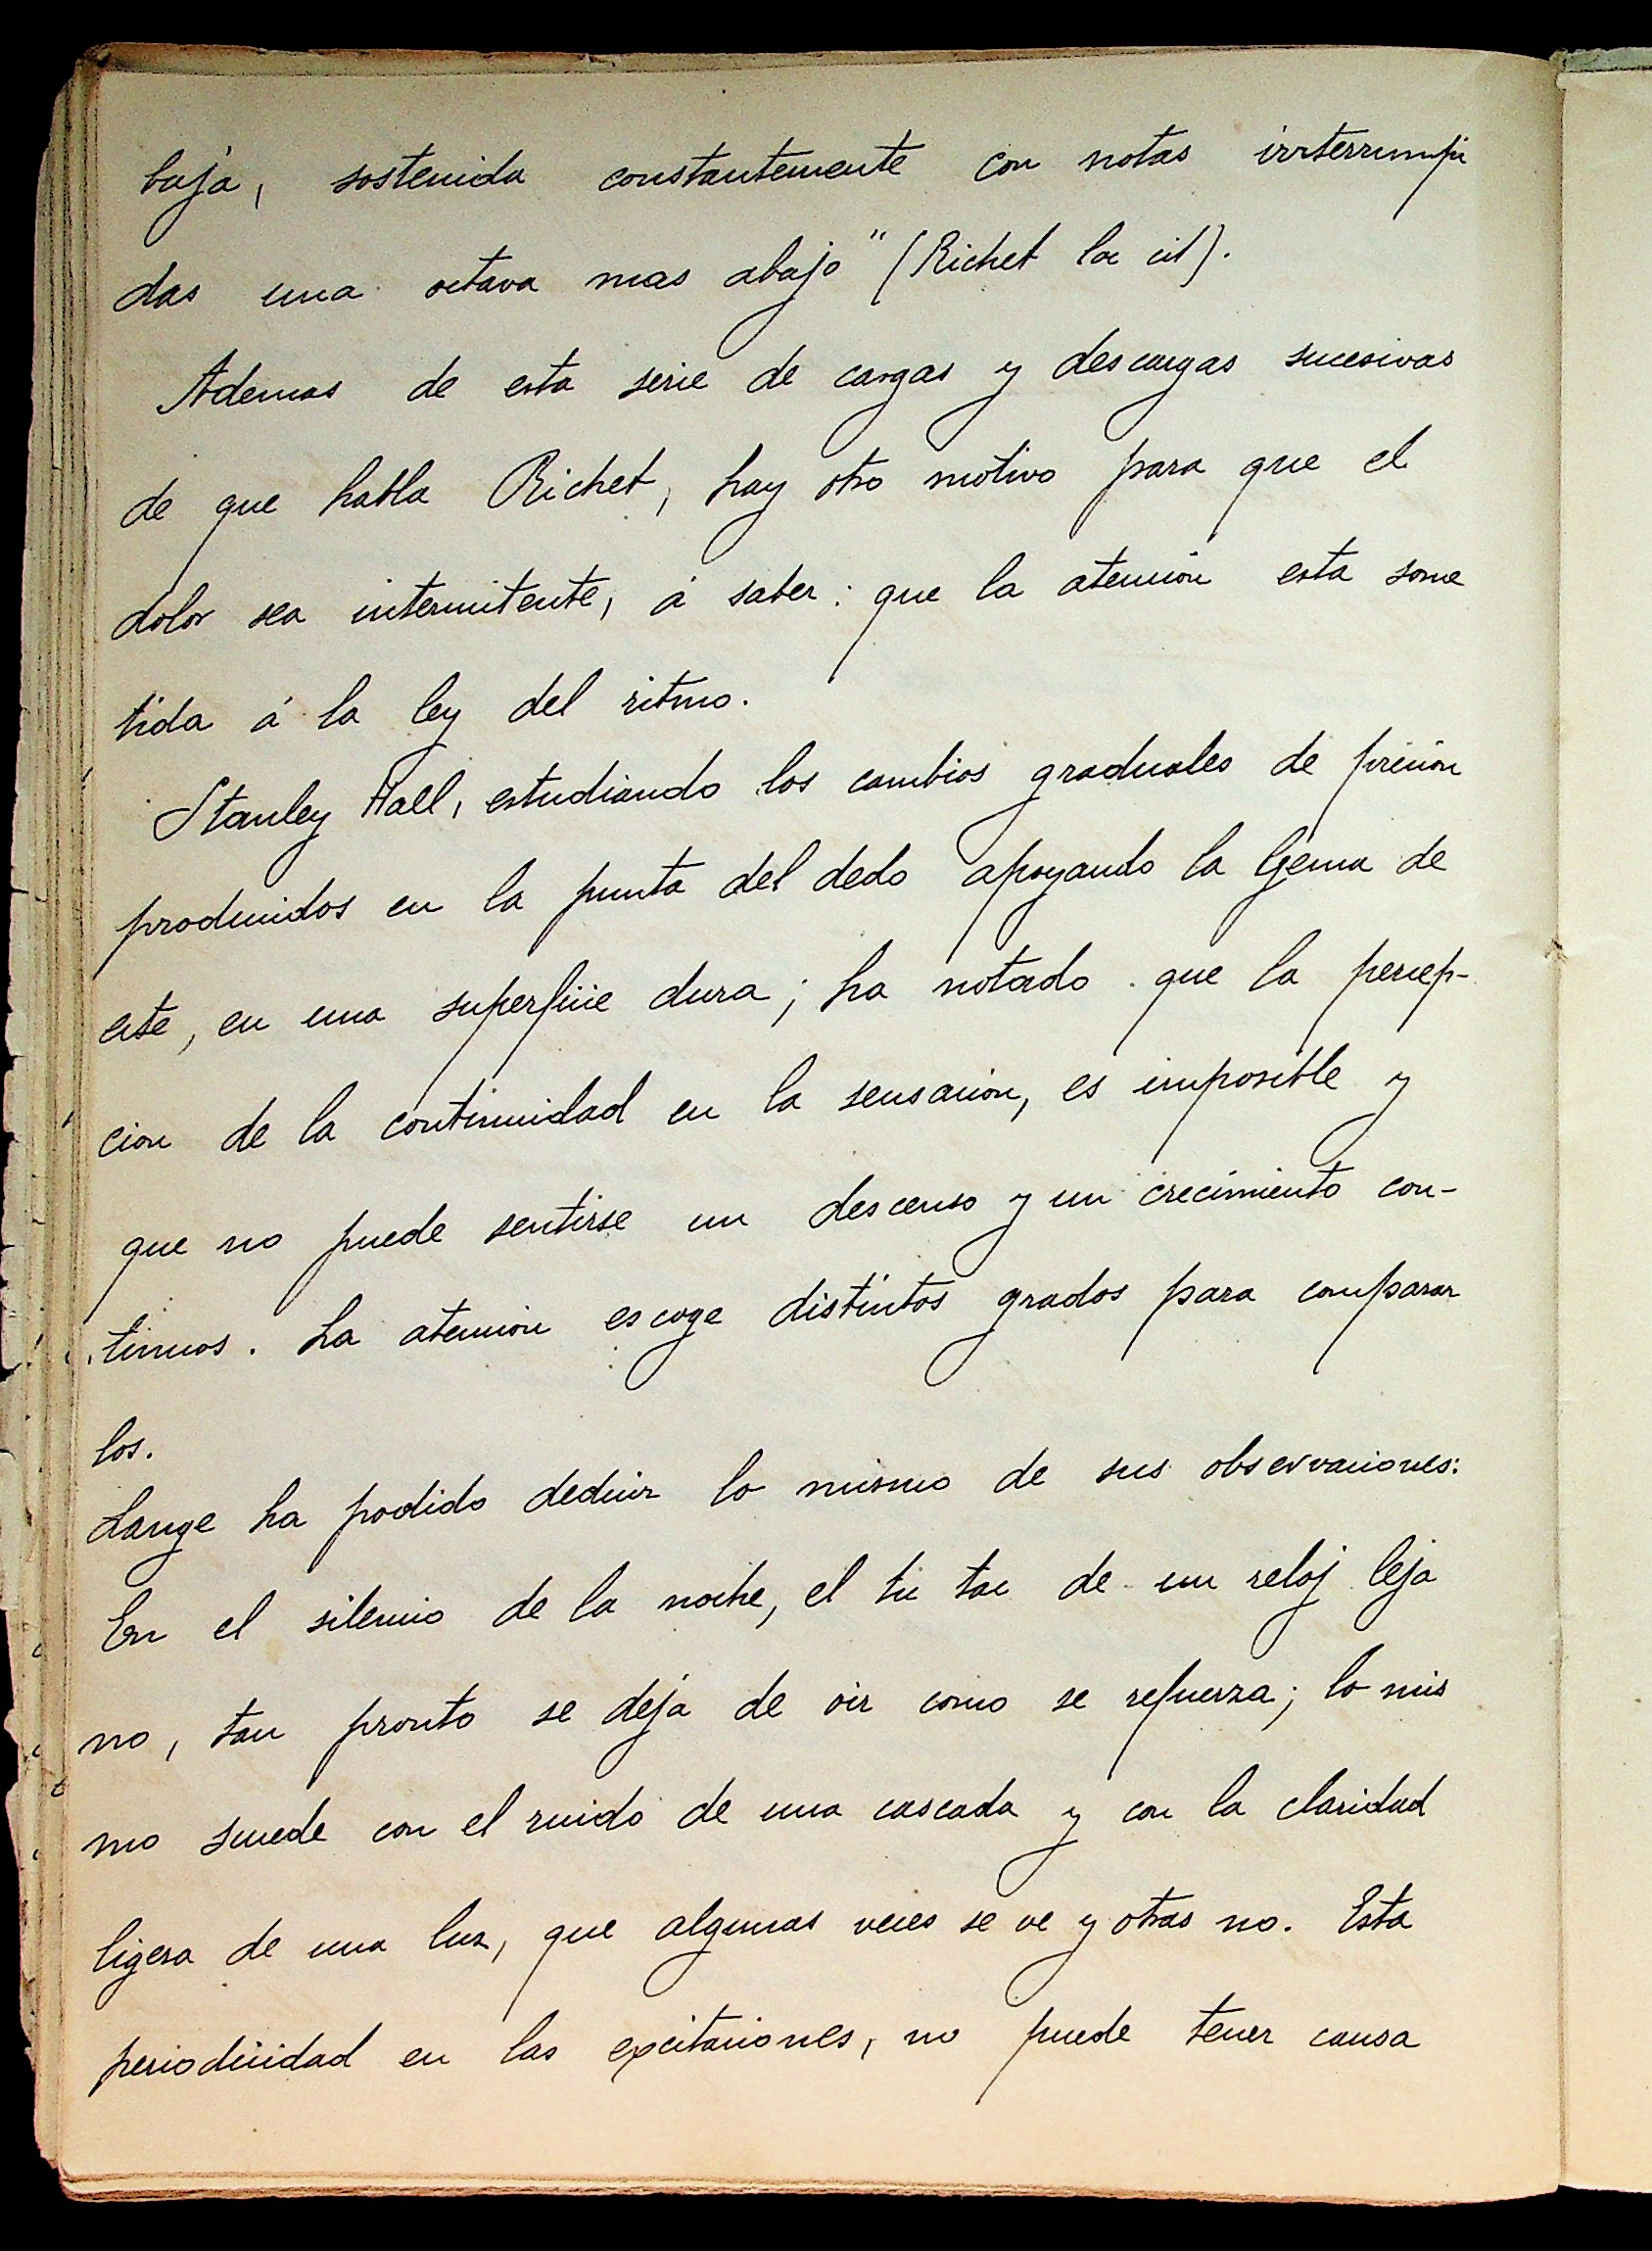 baja, sostenida constantemente con notas irrterrumpi
das una octava mas abajo" (Richet loc cit).
Ademas de esta serie de cargas y descargas sucesivas
de que habla Richet, hay otro motivo para que el
dolor sea intermitente, á saber: que la atencion esta some
tida á la ley del ritmo.
Stanley Hall, estudiando los cambios graduales de presion
producidos en la punta del dedo apoyando la yema de
este, en una superficie dura; ha notado que la percep-
cion de la continuidad en la sensacion, es imposible y
que no puede sentirse un descenso y un crecimiento con-
tinuos. La atencion escoge distintos grados para comparar
los.
Lange ha podido deducir lo mismo de sus observaciones:
En el silencio de la noche, el tic tac de un reloj leja
no, tan pronto se deja de oir como se refuerza; lo mis
mo sucede con el ruido de una cascada y con la claridad
ligera de una luz, que algunas veces se ve y otras no. Esta
periodicidad en las excitaciones, no puede tener causa